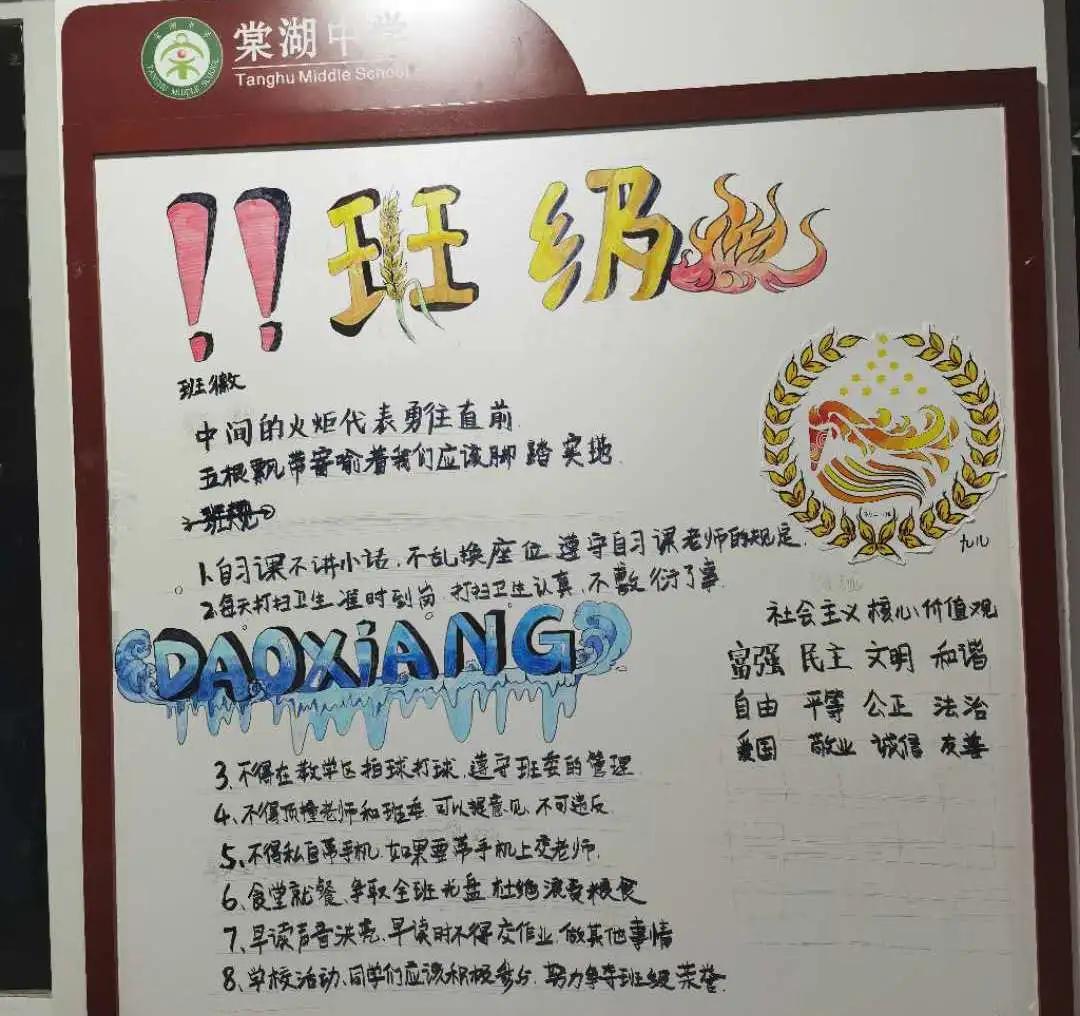 棠湖中学
Tanghu Middle School
TANGHU MIDDLE SCHOOL
!! 班级
班徽
中间的火炬代表勇往直前.
五根飘带寄喻着我们应该脚踏实地.
班规
1.自习课不讲小话,不乱换座位 遵守自习课老师的规定.
2.每天打扫卫生准时到岗,打扫卫生认真,不敷衍了事.
DAOXiANG
3、不得在教学区拍球打球,遵守班委的管理
4、不得顶撞老师和班委.可以提意见,不可违反
5、不得私自带手机,如果要带手机上交老师.
6、食堂就餐、争取全班光盘 杜绝浪费粮食
7、早读声音洪亮,早读时不得交作业,做其他事情
8、学校活动、同学们应该积极参与,努力争夺班级荣誉.
社会主义核心价值观
富强 民主 文明 和谐
自由 平等 公正 法治
爱国 敬业 诚信 友善